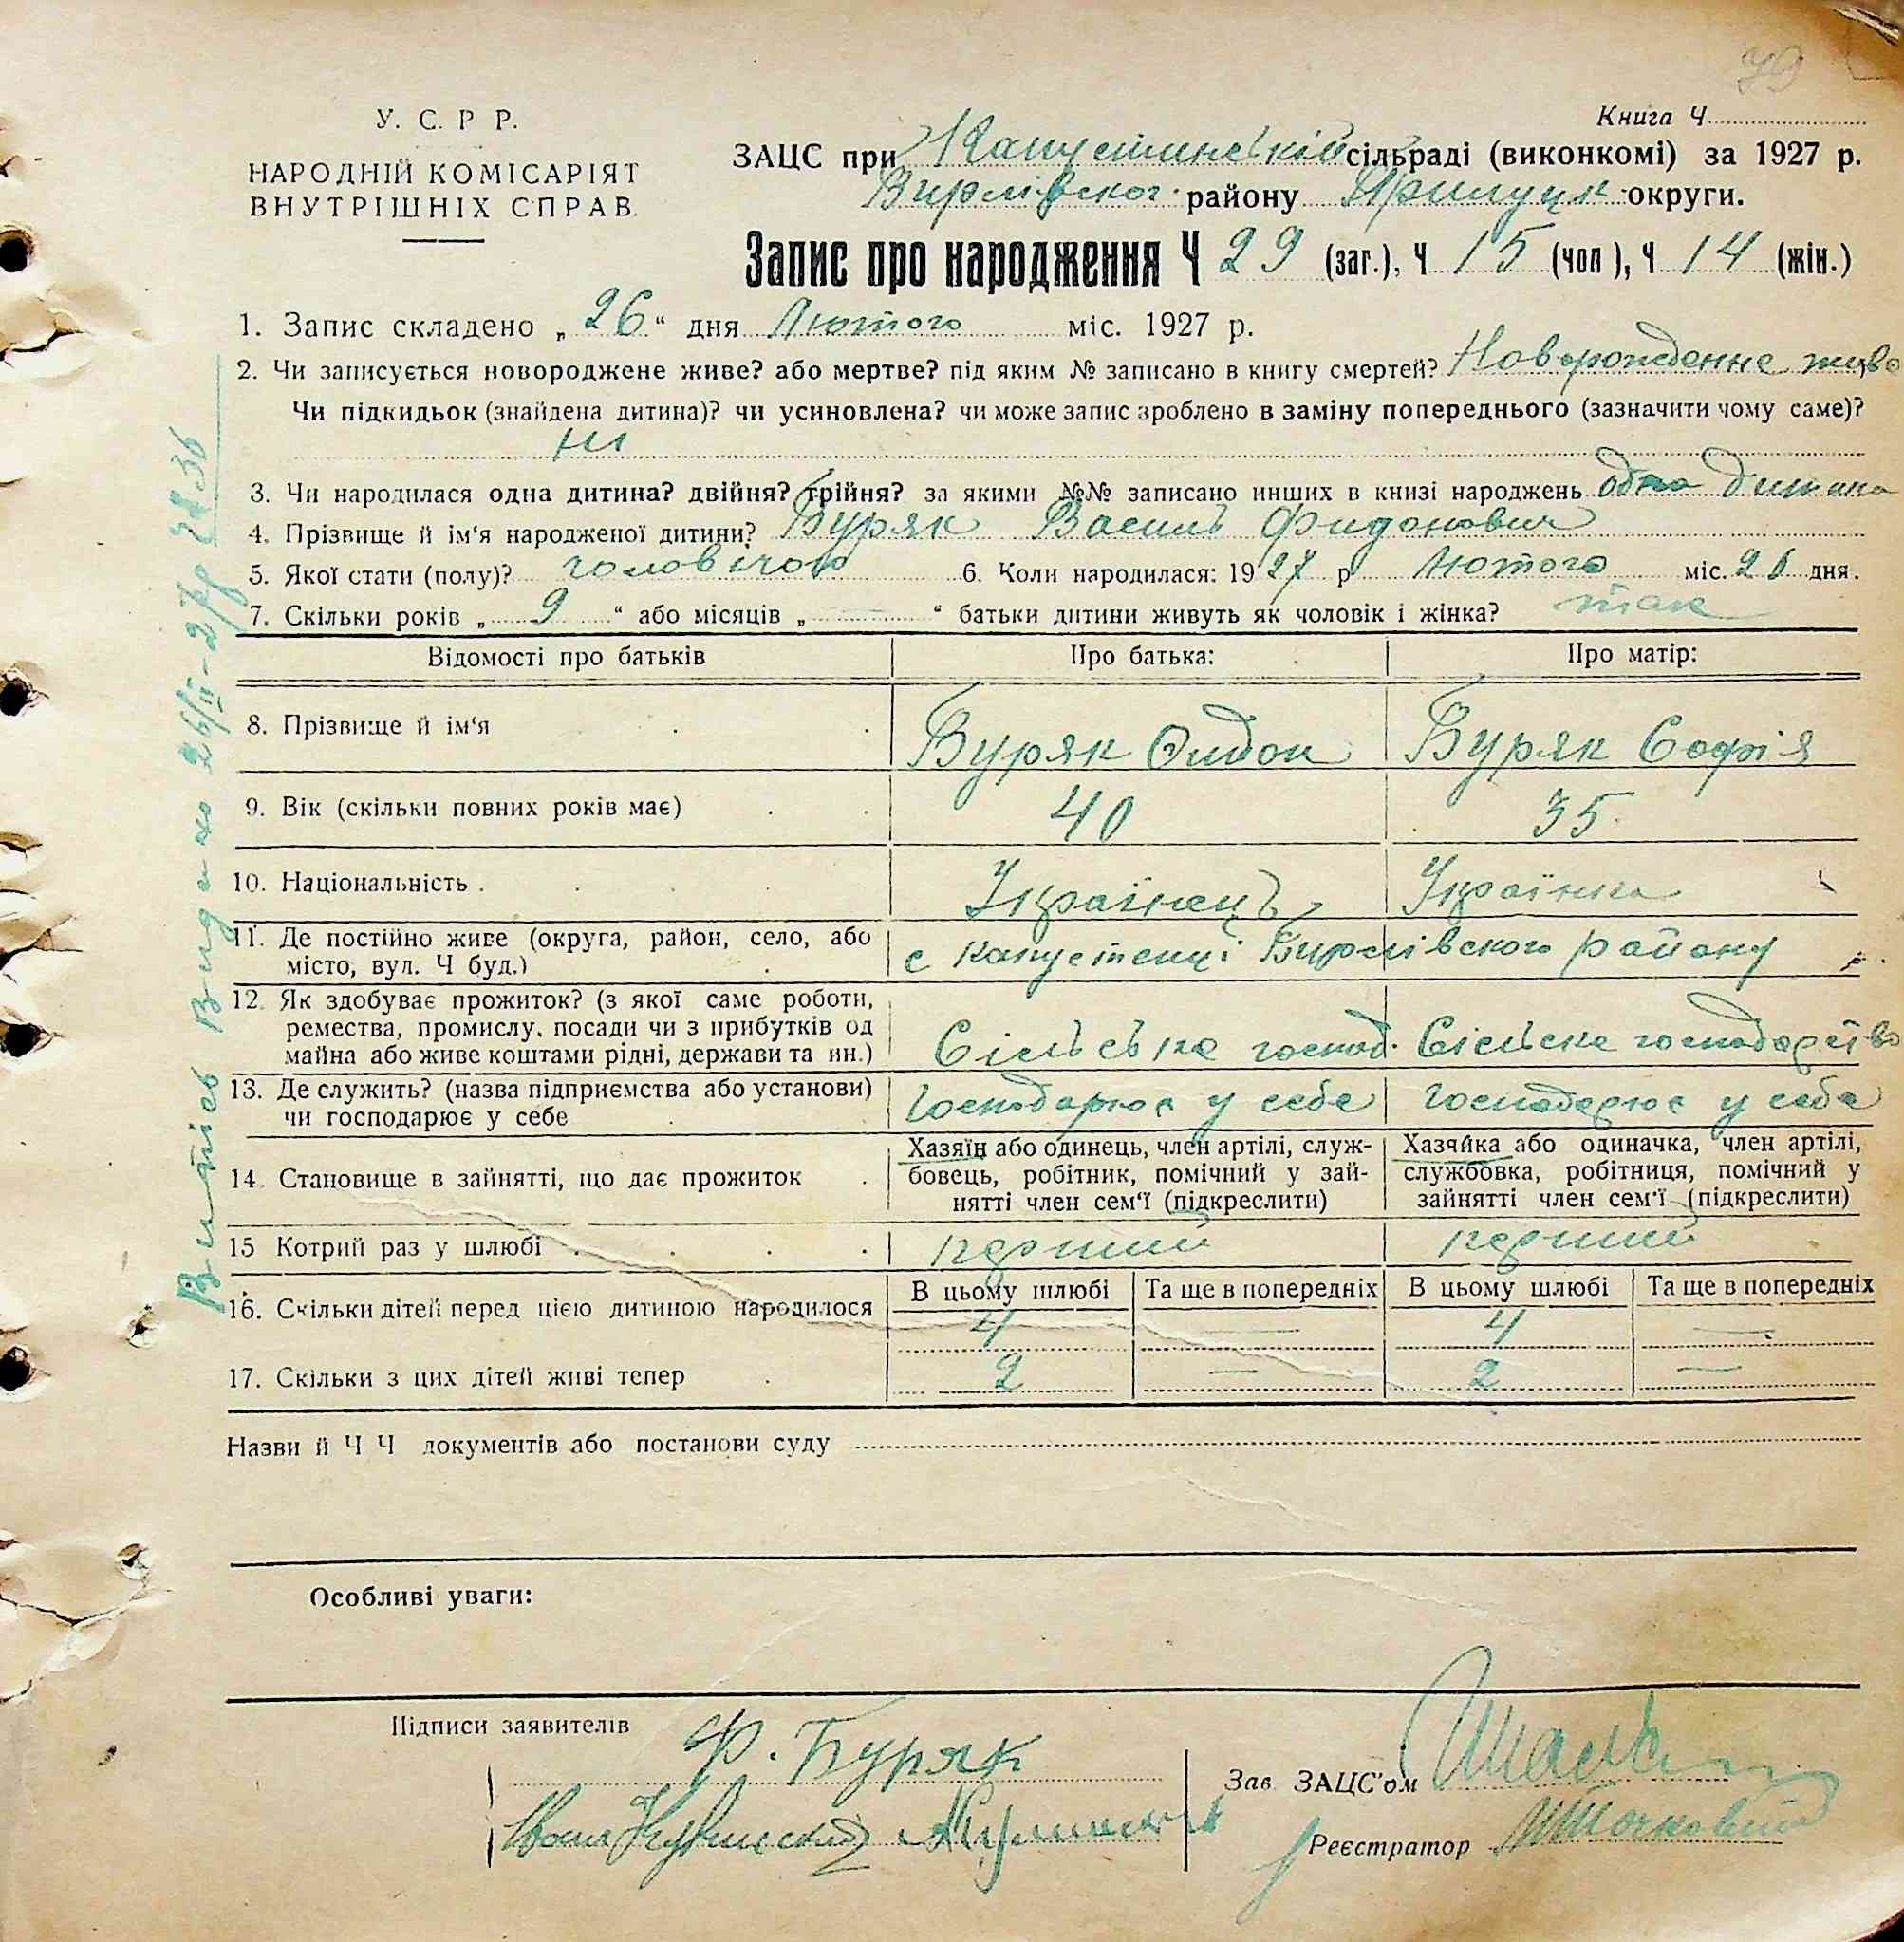 79
У. С. Р Р.
НАРОДНІЙ КОМІСАРІЯТ
ВНУТРІШНІХ СПРАВ.
Книга Ч
ЗАЦС при Капустинській сільраді (виконкомі) за 1927 р.
району Прилуцк округи.
Запис про народження Ч 29 (заг.), Ч 15 (чол), Ч 14 (жін.)
1. Запис складено „ 26 “ дня Лютого міс. 1927 р.
2. Чи записується новороджене живе? або мертве? під яким № записано в книгу смертей? Новорожденне живе
Чи підкидьок (знайдена дитина)? чи усиновлена? чи може запис зроблено в заміну попереднього (зазначити чому саме)?
ні
3. Чи народилася одна дитина? двійня? трійня? за якими №№ записано инших в книзі народжень одна дитина
4. Прізвище й ім'я народженої дитини? Буряк Василь Фидонович
5. Якої стати (полу)? чоловічою 6. Коли народилася: 1927 р Лютого міс. дня.
7. Скільки років „ 9 “ або місяців „ — “ батьки дитини живуть як чоловік і жінка? так
Відомості про батьків Про батька: Про матір:
8. Прізвище й ім'я Буряк Буряк Софія
9. Вік (скільки повних років має) 40 35
10. Національність . Українець Українка
11. Де постійно живе (округа, район, село, або
місто, вул. Ч буд.) с Капустенці району
12. Як здобуває прожиток? (з якої саме роботи,
ремества, промислу, посади чи з прибутків од
майна або живе коштами рідні, держави та ин.) Сільське господ. Сільське господарство
13. Де служить? (назва підприємства або установи)
чи господарює у себе Господарює у себе Господарює у себе
14. Становище в зайнятті, що дає прожиток
Хазяїн або одинець, член артілі, служ-
бовець, робітник, помічний у зай-
нятті член сем'ї (підкреслити)
Хазяйка або одиначка, член артілі,
службовка, робітниця, помічний у
зайнятті член сем'ї (підкреслити)
15 Котрий раз у шлюбі перший перший
В цьому шлюбі Та ще в попередніх В цьому шлюбі Та ще в попередніх
16. Скільки дітей перед цією дитиною народилося 4 — 4 —
17. Скільки з цих дітей живі тепер 2 — 2 —
Назви й Ч Ч документів або постанови суду
Особливі уваги:
Підписи заявителів Ф. Буряк
Зав. ЗАЦС'ом
Реєстратор
Витяг Видано